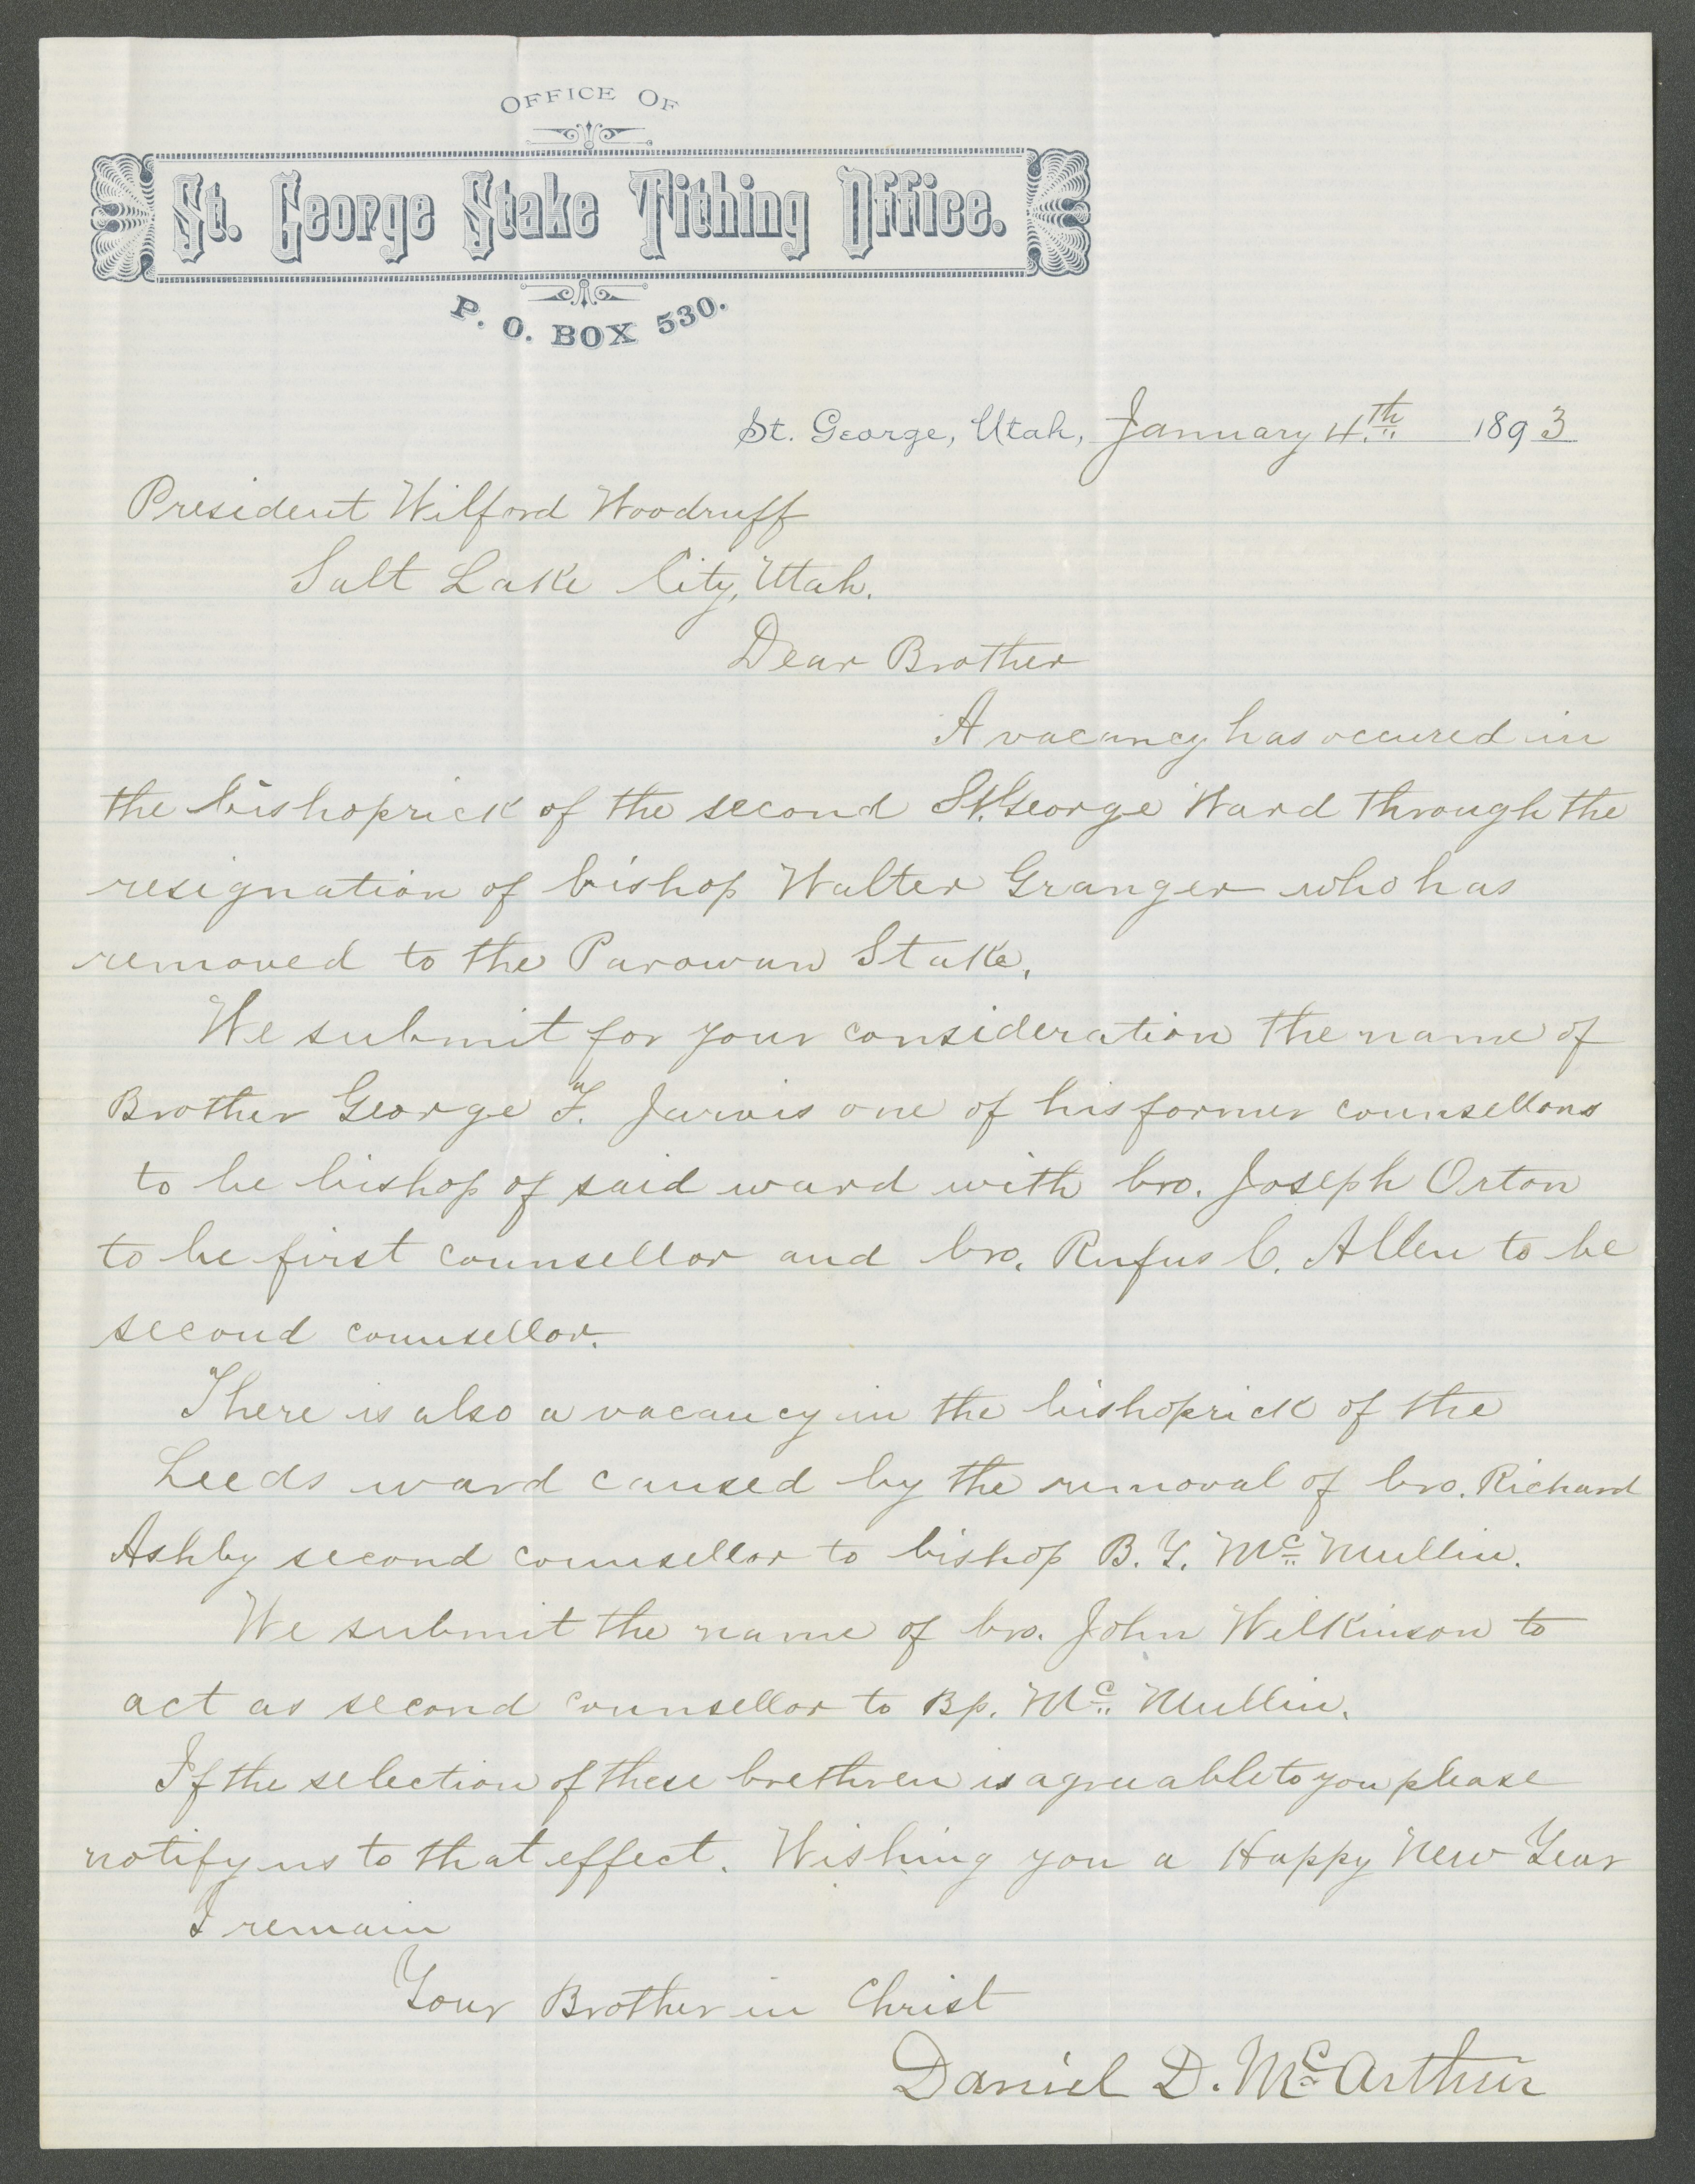 OFFICE OF
St. George Stake Tithing Office.
P. O. BOX 530.
St. George, Utah, January 4th 1893
President Wilford Woodruff
Salt Lake City, Utah.
Dear Brother
A vacancy has occured in
the bishoprick of the second St. George Ward through the
resignation of bishop Walter Granger who has
removed to the Parowan Stake.
We submit for your consideration the name of
Brother George F. Jarvis one of his former counsellors
to be bishop of said ward with bro. Joseph Orton
to be first counsellor and bro. Rufus C. Allen to be
second counsellor.
There is also a vacancy in the bishoprick of the
Leeds ward caused by the removal of bro. Richard
Ashby second counsellor to bishop B. Y. Mc Mullin.
We submit the name of bro. John Wilkinson to
act as second counsellor to Bp. Mc Mullin.
If the selection of these brethren is agreeable to you please
notify us to that effect. Wishing you a Happy New Year
I remain
Your Brother in Christ
Daniel D. McArthur